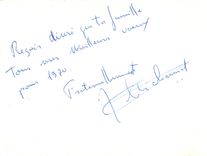 Reçois ainsi que ta famille
Tous mes meilleurs voeux
pour 1970
Fraternellement